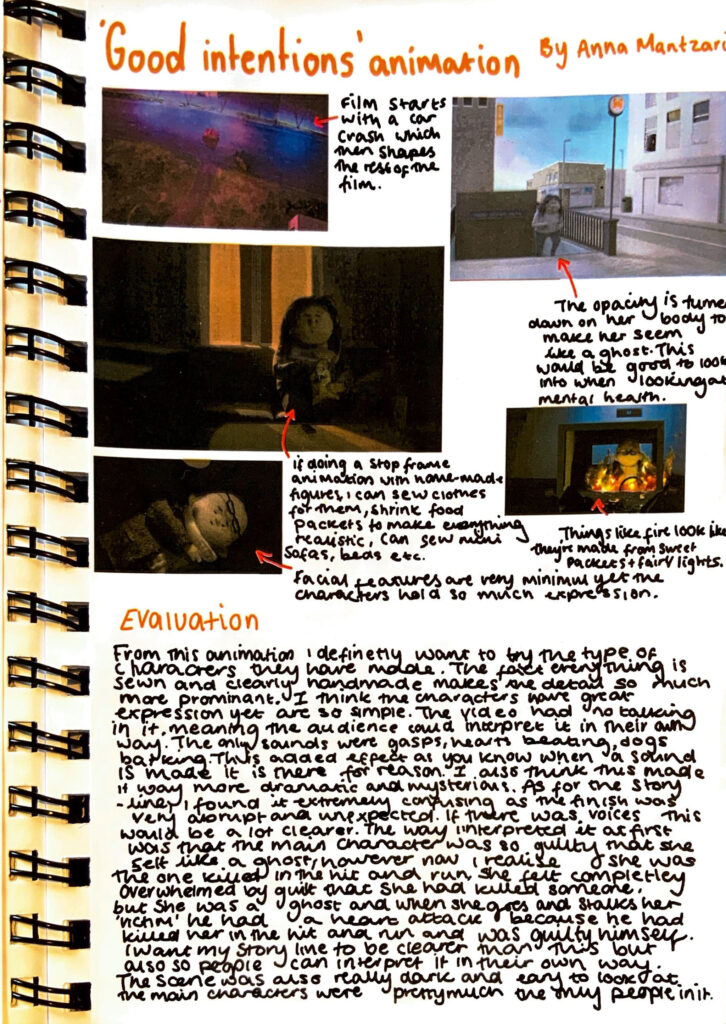 'Good intentions' animation
By Anna Mantzari
Film starts
with a car
crash which
then shapes
the rest of the
film.
The opacity is turne
down on her body to
make her seem
like a ghost. This
would be good to look
into when looking at
mental health.
if doing a stop frame
animation with home-made
figures, i can sew clothes
for them, shrink food
packets to make everything
realistic, can sew mini
sofas, beds etc.
Things like fire look like
they're made from sweet
packets + fairy lights.
Facial features are very minimul yet the
characters hold so much expression.
Evaluation
From this animation i definetly want to try the type of
characters they have made. The fact everything is
sewn and clearly handmade makes the detail so much
more prominant. I think the characters have great
expression yet are so simple. The video had no talking
in it, meaning the audience could interpret it in their own
way. The only sounds were gasps, hearts beating, dogs
barking. This added effect as you know when a sound
is made it is there for reason. I also think this made
it way more dramatic and mysterious. As for the story
-line, i found it extremely confusing as the finish was
very abrupt and unexpected. If there was voices this
would be a lot clearer. The way i interpreted it at first
was that the main character was so guilty that she
felt like a ghost, however now i realise if she was
the one killed in the hit and run. She felt completley
overwhelmed by guilt that she had killed someone,
but she was a ghost and when she goes and stalks her
'victim' he had a heart attack because he had
killed her in the hit and run and was guilty himself.
I want my story line to be clearer than this but
also so people can interpret it in their own way.
The scene was also really dark and easy to look at.
the main characters were pretty much the only people in it.